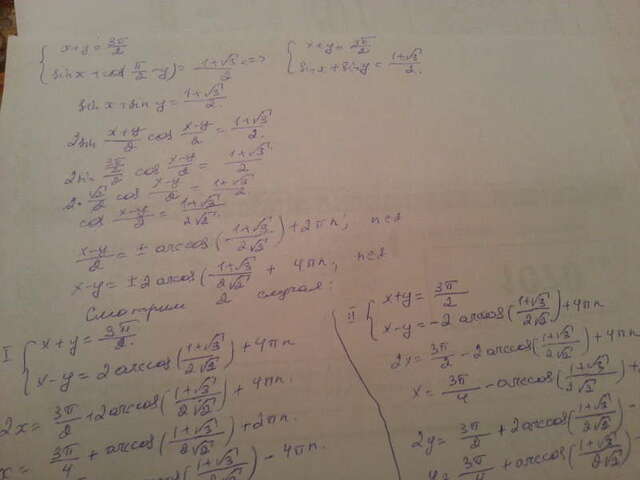 { x+y = 3π/2
{ sin x + cos(π/2 - y) = (1+√3)/2 <=>
{ x+y = 3π/2
{ sin x + sin y = (1+√3)/2.
sin x + sin y = (1+√3)/2.
2 sin (x+y)/2 cos (x-y)/2 = (1+√3)/2.
2 sin (3π/2)/2 cos (x-y)/2 = (1+√3)/2
2·√2/2 cos (x-y)/2 = (1+√3)/2
cos (x-y)/2 = (1+√3)/(2√2)
(x-y)/2 = ± arccos((1+√3)/(2√2)) + 2πn; n∈z
x-y = ±2 arccos((1+√3)/(2√2)) + 4πn; n∈z
Смотрим 2 случая:
I { x+y = 3π/2.
{ x-y = 2 arccos((1+√3)/(2√2)) + 4πn
2x = 3π/2 + 2 arccos((1+√3)/(2√2)) + 4πn.
x = 3π/4 + arccos((1+√3)/(2√2)) + 2πn.
((1+√3)/(2√2)) - 4πn.
II { x+y = 3π/2
{ x-y = -2 arccos((1+√3)/(2√2)) + 4πn
2x = 3π/2 - 2 arccos((1+√3)/(2√2)) + 4πn
x = 3π/4 - arccos((1+√3)/(2√2)) +
2y = 3π/2 + 2 arccos((1+√3)/(2√2)) -
y = 3π/4 + arccos((1+√3)/(2√2)) -